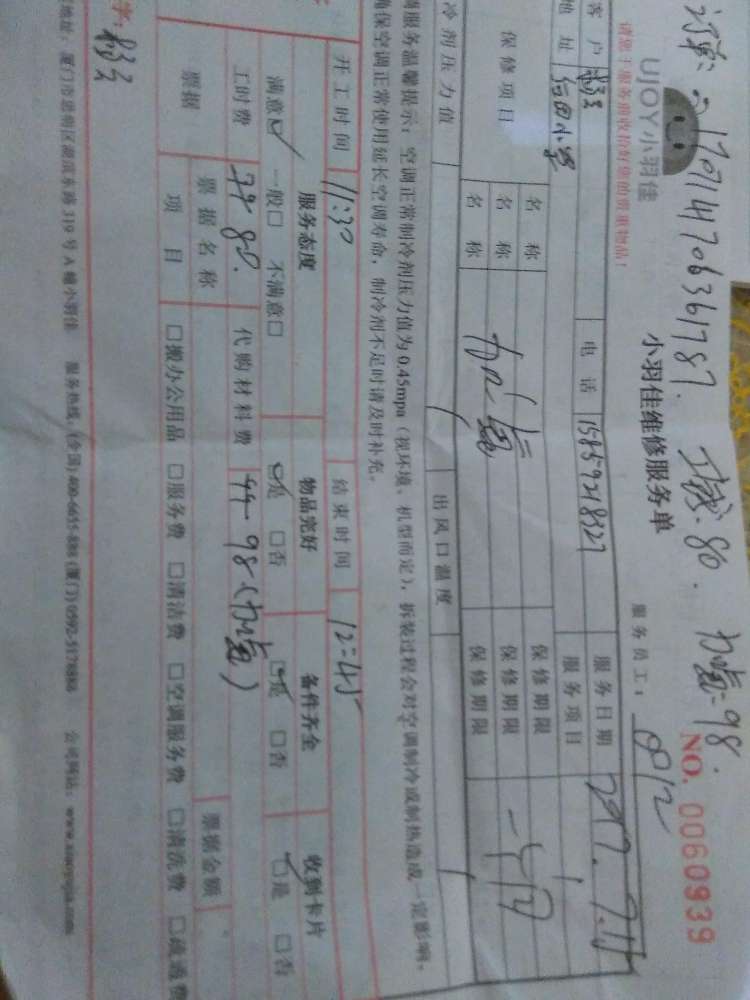 170714706361787. 80. 98.
UJOY小羽佳
小羽佳维修服务单
NO. 0060939
请您于服务前收拾好您的贵重物品!
服务员工: 012
客户 电话 15859218527 服务日期
地址 服务项目
保修项目 名称 保修期限
名称 保修期限
名称 保修期限
冷剂压力值 出风口温度
调服务温馨提示:空调正常制冷剂压力值为0.45mpa(视环境、机型而定),拆装过程会对空调制冷或制热造成一定影响。
确保空调正常使用延长空调寿命,制冷剂不足时请及时补充。
开工时间 11:30 结束时间 12:45
服务态度 物品完好 备件齐全 收到卡片
满意☑ 一般□ 不满意□ ☑是 □否 ☑是 □否 ☑是 □否
工时费 80. 代购材料费 98
票据 票据名称 票据金额
项目 □搬办公用品 □服务费 □清洁费 □空调服务费 □清洗费 □疏通费
字:
地址:厦门市思明区湖滨东路319号A幢小羽佳 服务热线:(全国)400-6655-888 (厦门)0592-5170888 公司网站:www.xiaoyujia.com